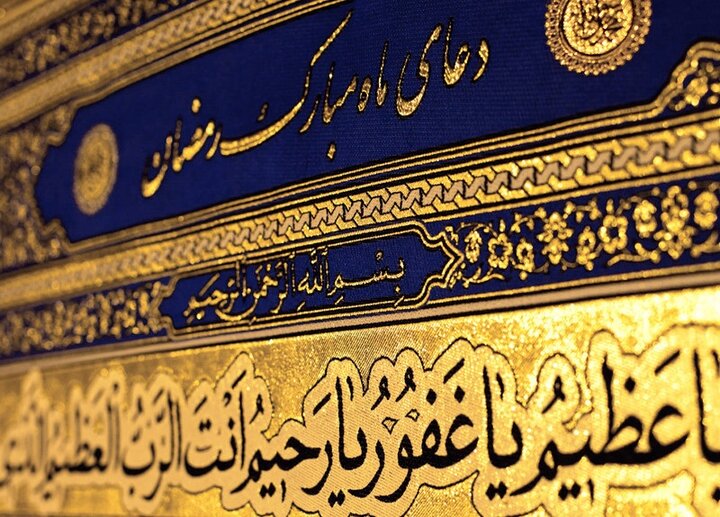 دعای ماه مبارک رمضان
بِسْمِ اللَّهِ الرَّحْمَٰنِ الرَّحِيمِ
يا عَظيمُ يا غَفُورُ يا رَحيمُ اَنْتَ الرَّبُّ الْعَظيمُ